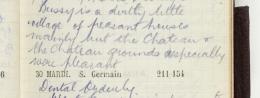 Bussy is a dirty little
village of peasant houses
mainly but the Chateau &
the Chateau grounds especially
were pleasant
6
30 MARDI. S. Germain 211-154
Dental Orderly.